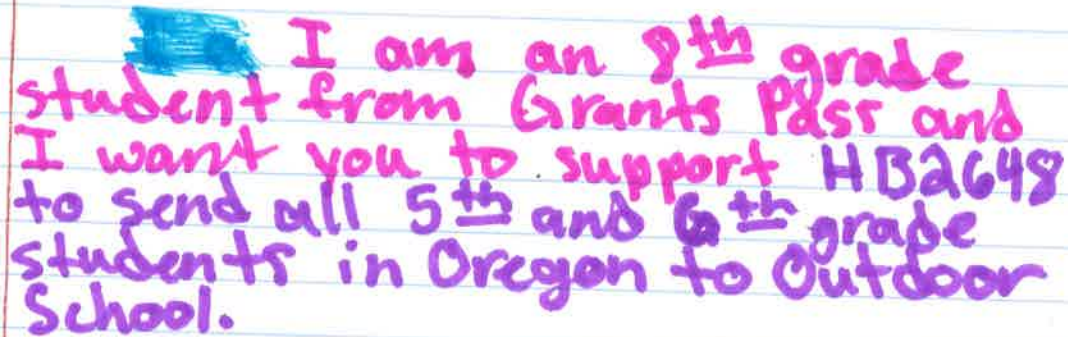 I am an 8th grade
student from Grants Pass and
I want you to support HB2648
to send all 5th and 6th grade
students in Oregon to Outdoor
School.